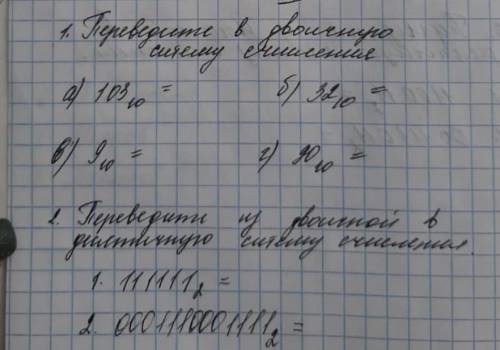 1. Переведите в двоичную
систему счисления
а) 103₁₀ = б) 32₁₀ =
в) 9₁₀ = г) 90₁₀ =
2. Переведите из двоичной в
десятичную систему счисления.
1. 111111₂ =
2. 0001110001111₂ =